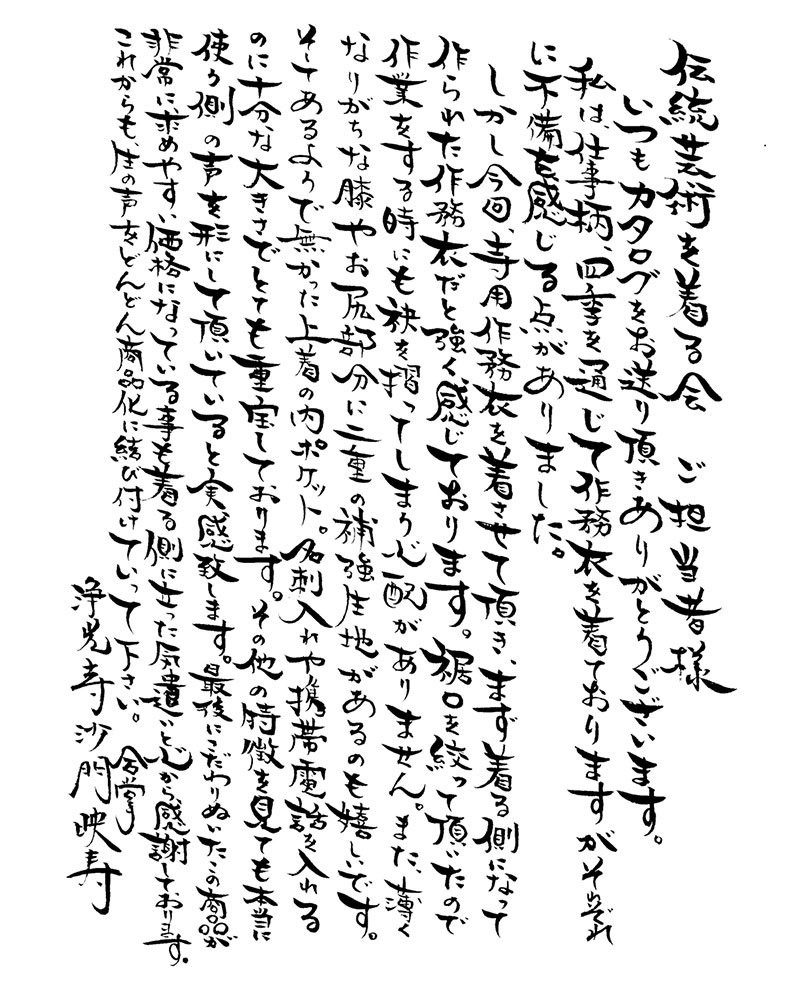 伝統芸術を着る会　ご担当者様
いつもカタログをお送り頂きありがとうございます。
私は、仕事柄、四季を通じて作務衣を着ておりますがそれぞれ
に不備を感じる点がありました。
しかし今回、寺用作務衣を着させて頂き、まず着る側になって
作られた作務衣だと強く感じております。裾口を絞って頂いたので
作業をする時にも裾を摺ってしまう心配がありません。また、薄く
なりがちな膝やお尻部分に二重の補強生地があるのも嬉しいです。
そしてあるようで無かった上着の内ポケット。名刺入れや携帯電話を入れる
のに十分な大きさでとても重宝しております。その他の特徴を見ても本当に
使う側の声を形にして頂いていると実感致します。最後にこだわりぬいたこの商品が
非常に求めやすい価格になっている事も着る側に立った気遣いと心から感謝しております。
これからも、生の声をどんどん商品化に結び付けていって下さい。　合掌
浄光寺沙門映寿